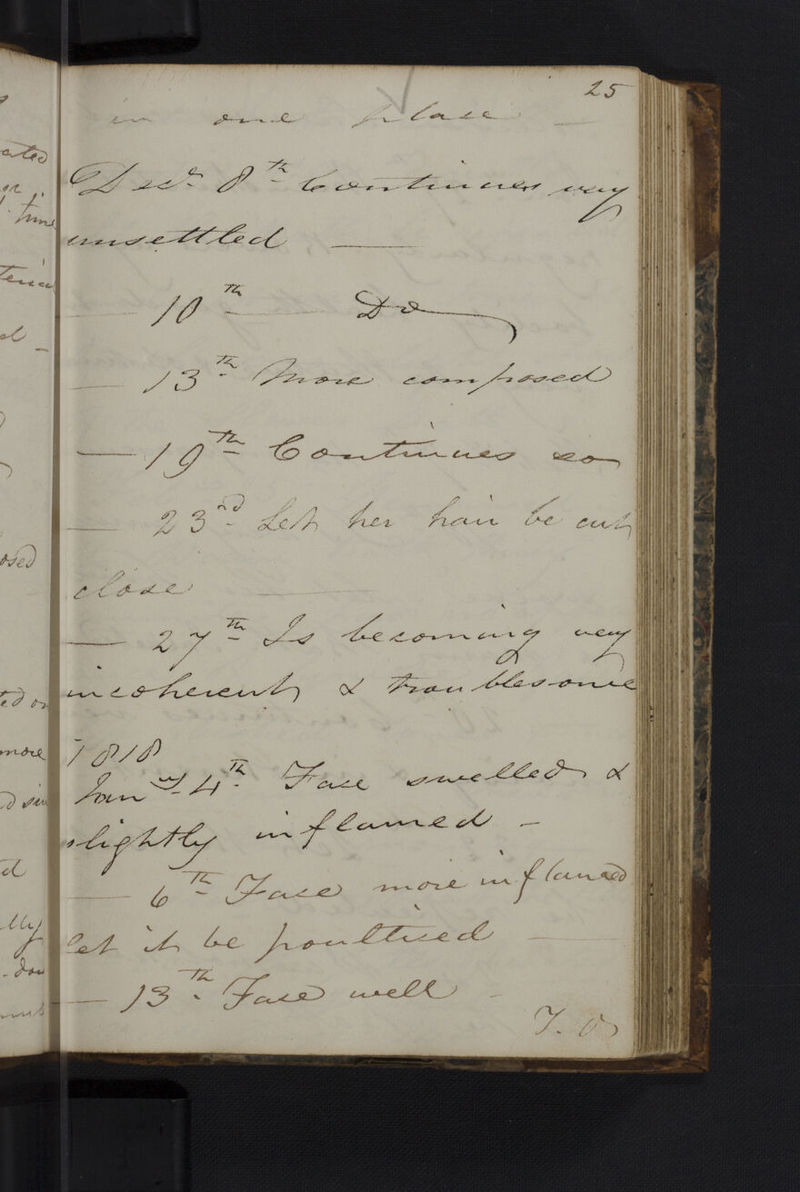 25
in one place —
Decr. 8th Continues very
unsettled —
— 10th — Do
— 13th More composed
— 19th Continues so
— 23rd Let her hair be cut
close —
— 27th Is becoming very
incoherent & troublesome
1818
Jany. 4th. Face swelled &
slightly inflamed —
— 6th Face more inflamed
let it be poulticed —
— 13th. Face well —
T. O